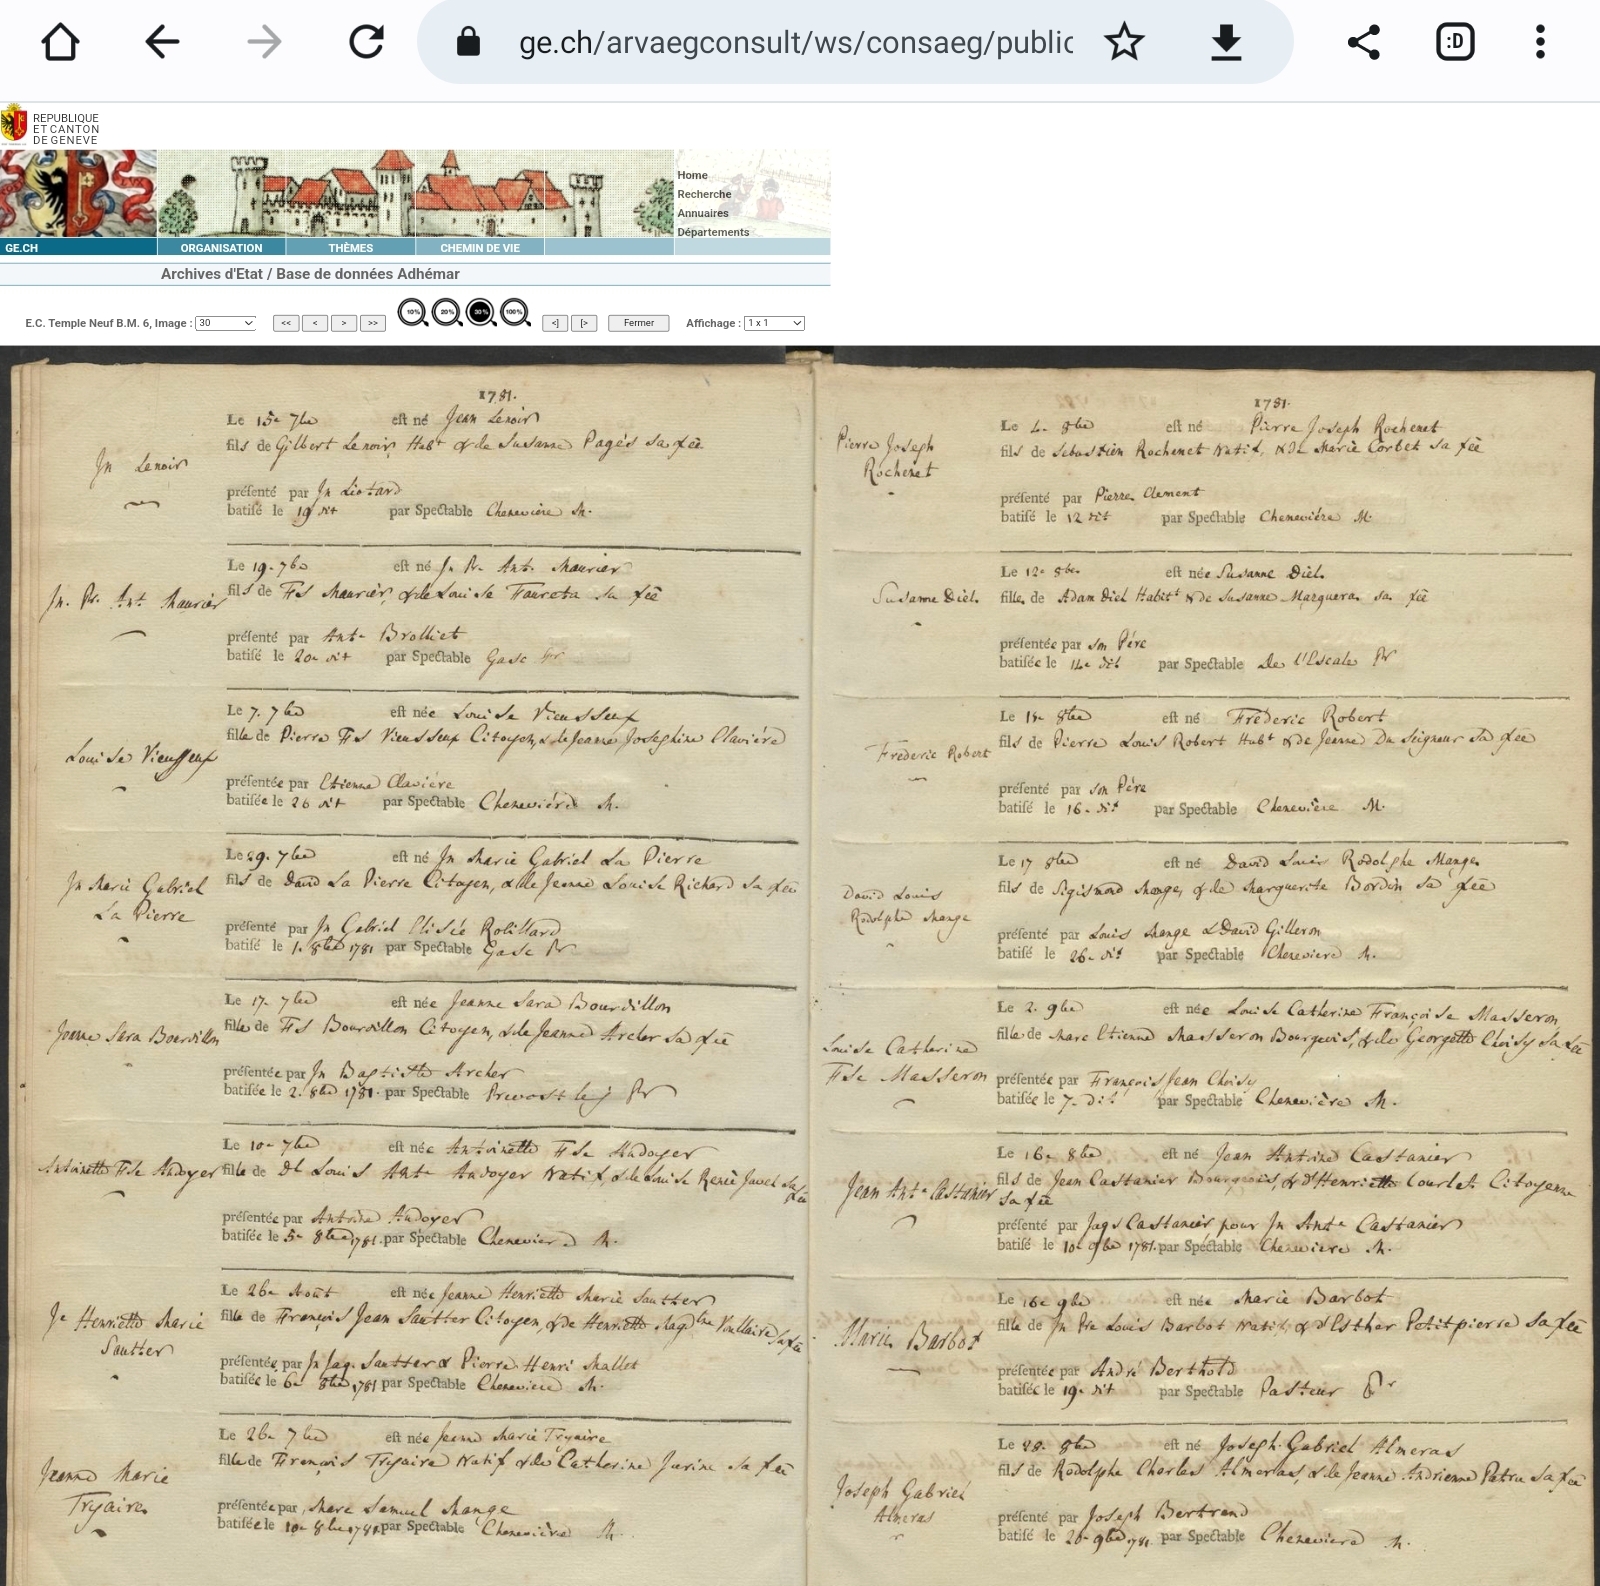 ge.ch/arvaegconsult/ws/consaeg/public
:D
REPUBLIQUE
ET CANTON
DE GENEVE
Home
Recherche
Annuaires
Départements
GE.CH ORGANISATION THÈMES CHEMIN DE VIE
Archives d'Etat / Base de données Adhémar
E.C. Temple Neuf B.M. 6, Image : 30 << < > >> 10% 20% 30% 100% <] [> Fermer Affichage : 1 x 1
1781.
Le 15e 7bre est né Jean Lenoir
fils de Gilbert Lenoir Habt & de Susanne Pagés sa fẽe
Jn Lenoir
présenté par Jn Liotard
batisé le 19 dit par Spectable Chenevière M.
Le 19. 7bre est né Jn Pr. Ant. Maurier
Jn. Pr. Ant Maurier
fils de Fs Maurier, & de Louise sa fẽe
présenté par Ante Brolliet
batisé le 20e dit par Spectable Gasc Pr
Le 7. 7bre est née Louise Vieusseux
fille de Pierre Fs Vieusseux Citoyen, & de Jeanne Josephine Clavière
Louise Vieusseux
présentée par Etienne Clavière
batisée le 26 dit par Spectable Chenevière M.
Le 29. 7bre est né Jn Marie Gabriel La Pierre
fils de David La Pierre Citoyen, & de Jeanne Louise Richard sa fẽe
Jn Marie Gabriel
La Pierre
présenté par Jn Gabriel Elisée Robillard
batisé le 1. 8bre 1781 par Spectable Gasc Pr
Le 17. 7bre est née Jeanne Sara Bourdillon
fille de Fs Bourdillon Citoyen, & de Jeanne Archer sa fẽe
Jeanne Sara Bourdillon
présentée par Jn Baptiste Archer
batisée le 2. 8bre 1781. par Spectable Prevost Pr
Le 10e 7bre est née Antoinette Fse Andoyer
Antoinette Fse Andoyer
fille de Dl Louis Ante Andoyer Natif, & de Louise Renée Javel sa fẽe
présentée par Antoine Andoyer
batisée le 5e 8bre 1781. par Spectable Chenevière M.
Le 26e Août est née Jeanne Henriette Marie Sautter
fille de François Jean Sautter Citoyen, & de Henriette Magdlne Voullaire sa fẽe
Je Henriette Marie
Sautter
présentée par Jn Jaq. Sautter & Pierre Henri Mallet
batisée le 6e 8bre 1781 par Spectable Chenevière M.
Le 26e 7bre est née Jeanne Marie Tryaire
fille de François Tryaire Natif & de Catherine Jurine sa fẽe
Jeanne Marie
Tryaire
présentée par Marc Samuel Mange
batisée le 10e 8bre 1781. par Spectable Chenevière M.
1781.
Le 4e 8bre est né Pierre Joseph Rochenet
Pierre Joseph
Rochenet
fils de Sebastien Rochenet Natif, & de Marie Corbet sa fẽe
présenté par Pierre Clement
batisé le 12 dit par Spectable Chenevière M.
Le 12e 8bre est née Susanne Diel
Susanne Diel
fille de Adam Diel Habitt & de Susanne Marguera sa fẽe
présentée par son Pére
batisée le 14e dit par Spectable De l'Escale Pr
Le 1re 8bre est né Fréderic Robert
fils de Pierre Louis Robert Habt & de Jeanne Du Seigneur sa fẽe
Frederic Robert
présenté par son Pére
batisé le 16e dit par Spectable Chenevière M.
Le 17 8bre est né David Louis Rodolphe Mange
fils de Sigismond Mange, & de Marguerite Bordon sa fẽe
David Louis
Rodolphe Mange
présenté par Louis Mange & David Gilleron
batisé le 26e dit par Spectable Chenevière M.
Le 2. 9bre est née Louise Catherine Françoise Masseron
fille de Marc Etienne Masseron Bourgeois, & de Georgette Choisy sa fẽe
Louise Catherine
Fse Masseron
présentée par François Jean Choisy
batisée le 7e dit par Spectable Chenevière M.
Le 16e 8bre est né Jean Antoine Castanier
fils de Jean Castanier Bourgeois, & d'Henriette Courlet Citoyenne
sa fẽe
Jean Ante Castanier
présenté par Jaqs Castanier, pour Jn Ante Castanier
batisé le 10e 9bre 1781. par Spectable Chenevière M.
Le 16e 9bre est née Marie Barbot
fille de Jn Pre Louis Barbot Natif, & d'Esther Petitpierre sa fẽe
Marie Barbot
présentée par André Berthold
batisée le 19e dit par Spectable Pasteur Pr
Le 28. 8bre est né Joseph Gabriel Almeras
fils de Rodolphe Charles Almeras, & de Jeanne Andrienne Patru sa fẽe
Joseph Gabriel
Almeras
présenté par Joseph Bertrand
batisé le 20e 9bre 1781. par Spectable Chenevière M.